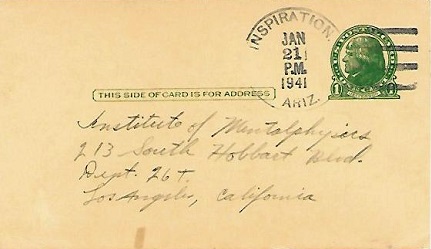 INSPIRATION.
JAN
21
P.M.
1941
ARIZ.
THIS SIDE OF CARD IS FOR ADDRESS
1
Institute of Mentalphysics
213 South Hobbart Blvd.
Dept. 26 t.
Los Angeles, California